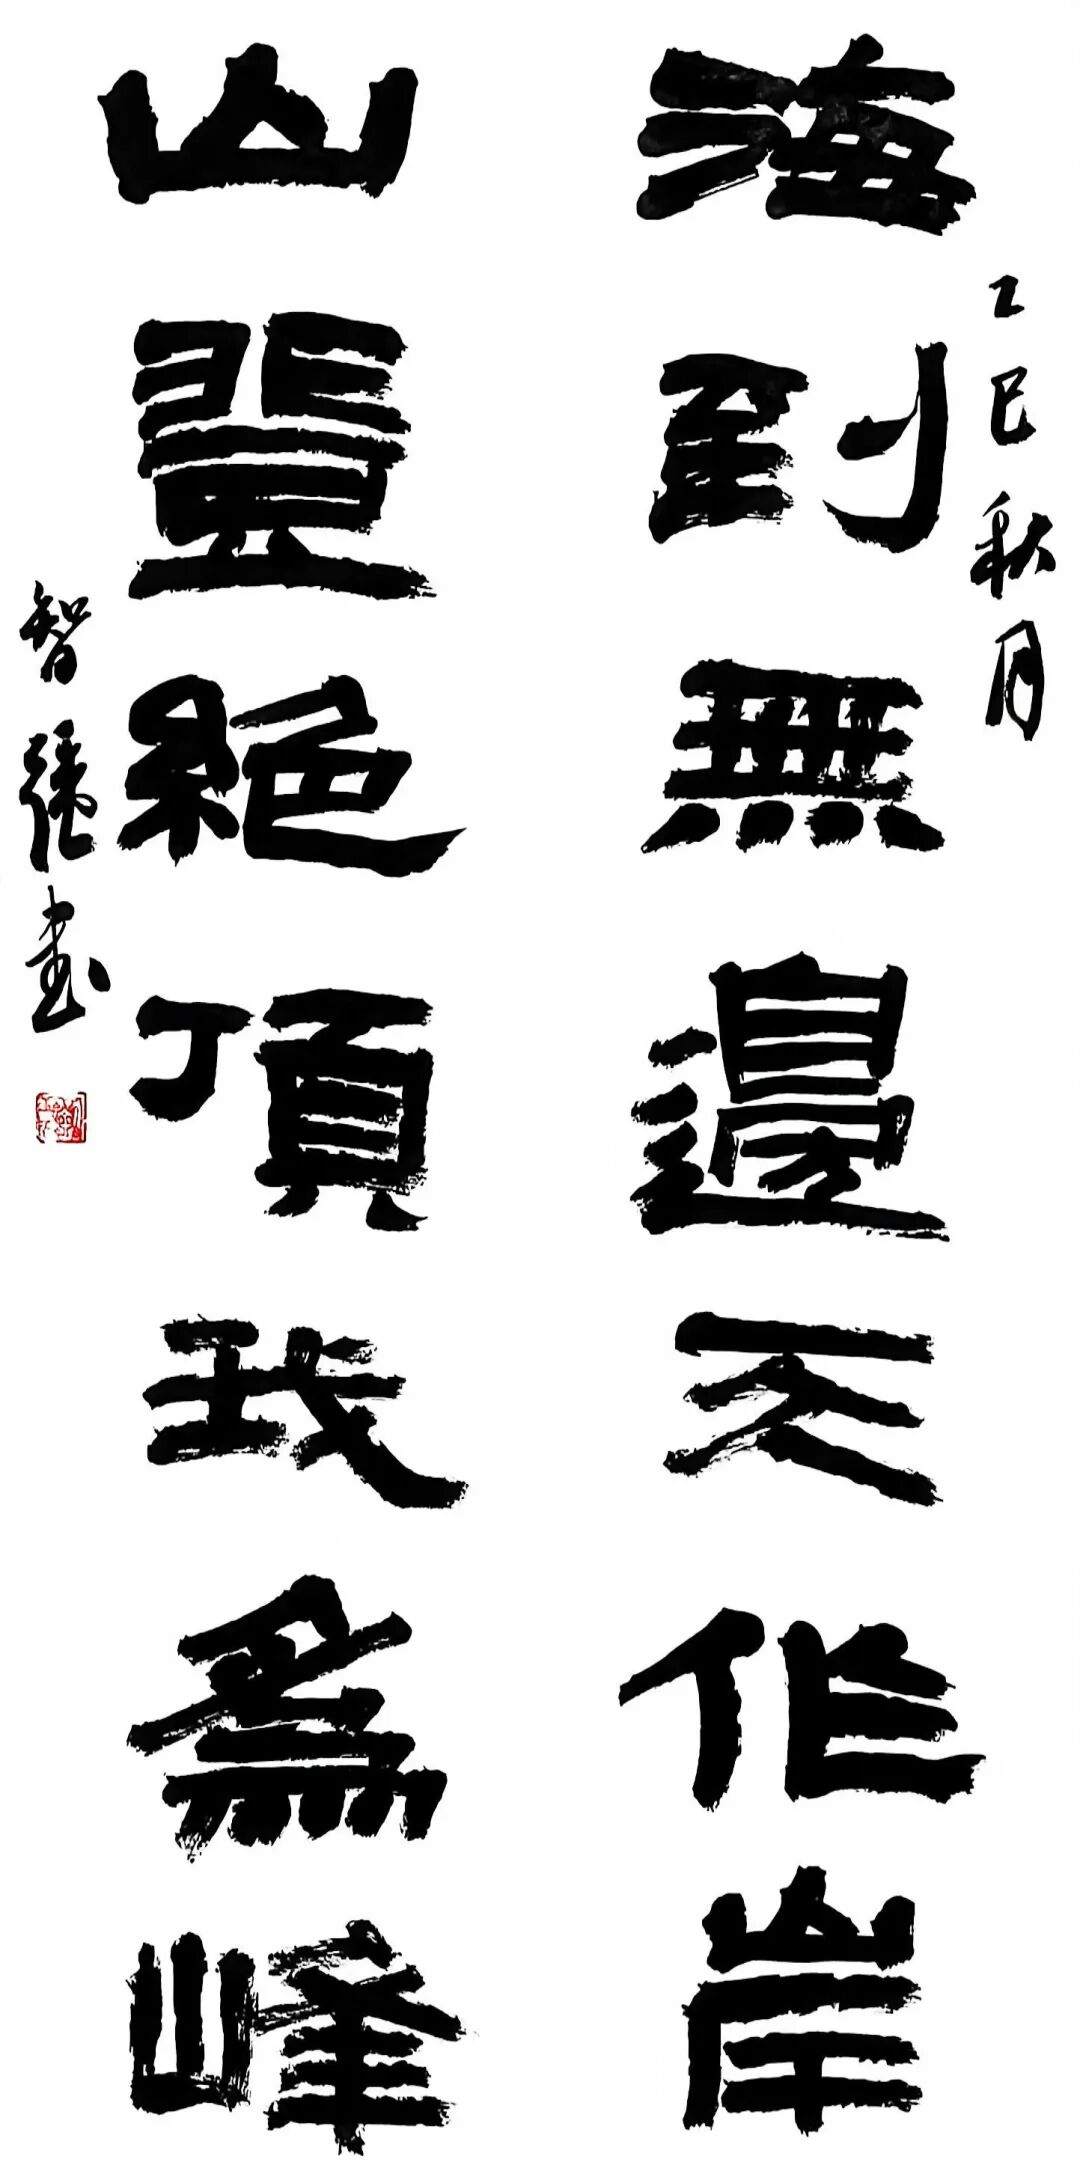 海到無邊天作岸
乙巳秋月
山登絕頂我為峰
智強書